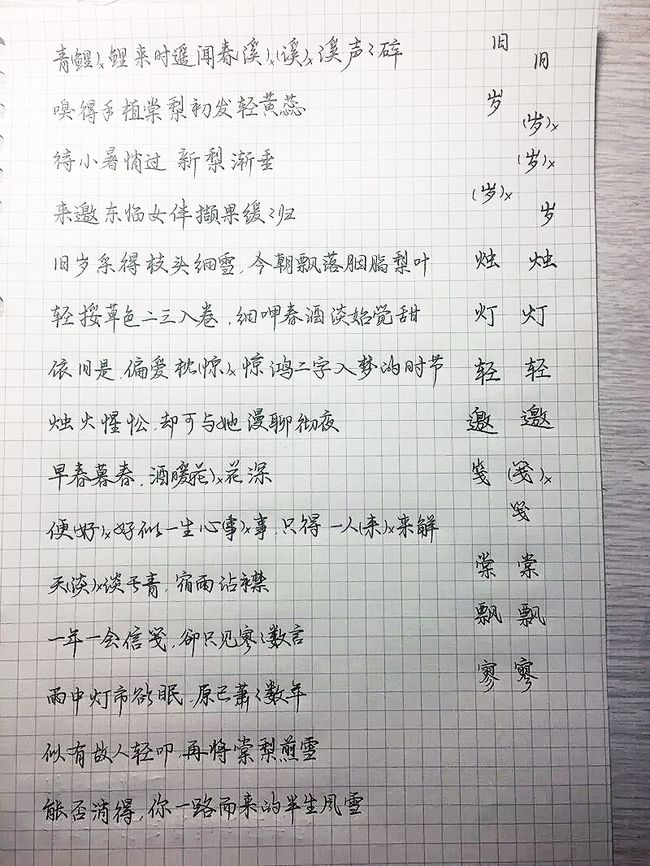 青(鲤)ₓ鲤来时遥闻春(溪)ₓ(溪)ₓ溪声々碎
嗅得手植棠梨初发轻黄蕊
待小暑悄过 新梨渐垂
来邀东临女伴撷果缓々归
旧岁采得枝头细雪,今朝飘落胭脂梨叶
轻挼草色二三入卷,细呷春酒淡始觉甜
依旧是,偏爱枕(惊)ₓ惊鸿二字入梦的时节
烛火惺忪,却可与她漫聊彻夜
早春暮春,酒暖(花)ₓ花深
便(好)ₓ好似一生心(事)ₓ事,只得一人(来)ₓ来解
天(淡)ₓ淡天青,宿雨沾襟
一年一会信笺,卻只见寥々数言
雨中灯市欲眠,原已萧々数年
似有故人轻叩,再将棠梨煎雪
能否消得,你一路而来的半生风雪
旧 旧
岁 (岁)ₓ
(岁)ₓ
(岁)ₓ 岁
烛 烛
灯 灯
轻 轻
邀 邀
笺 (笺)ₓ
笺
棠 棠
飘 飘
寥 寥